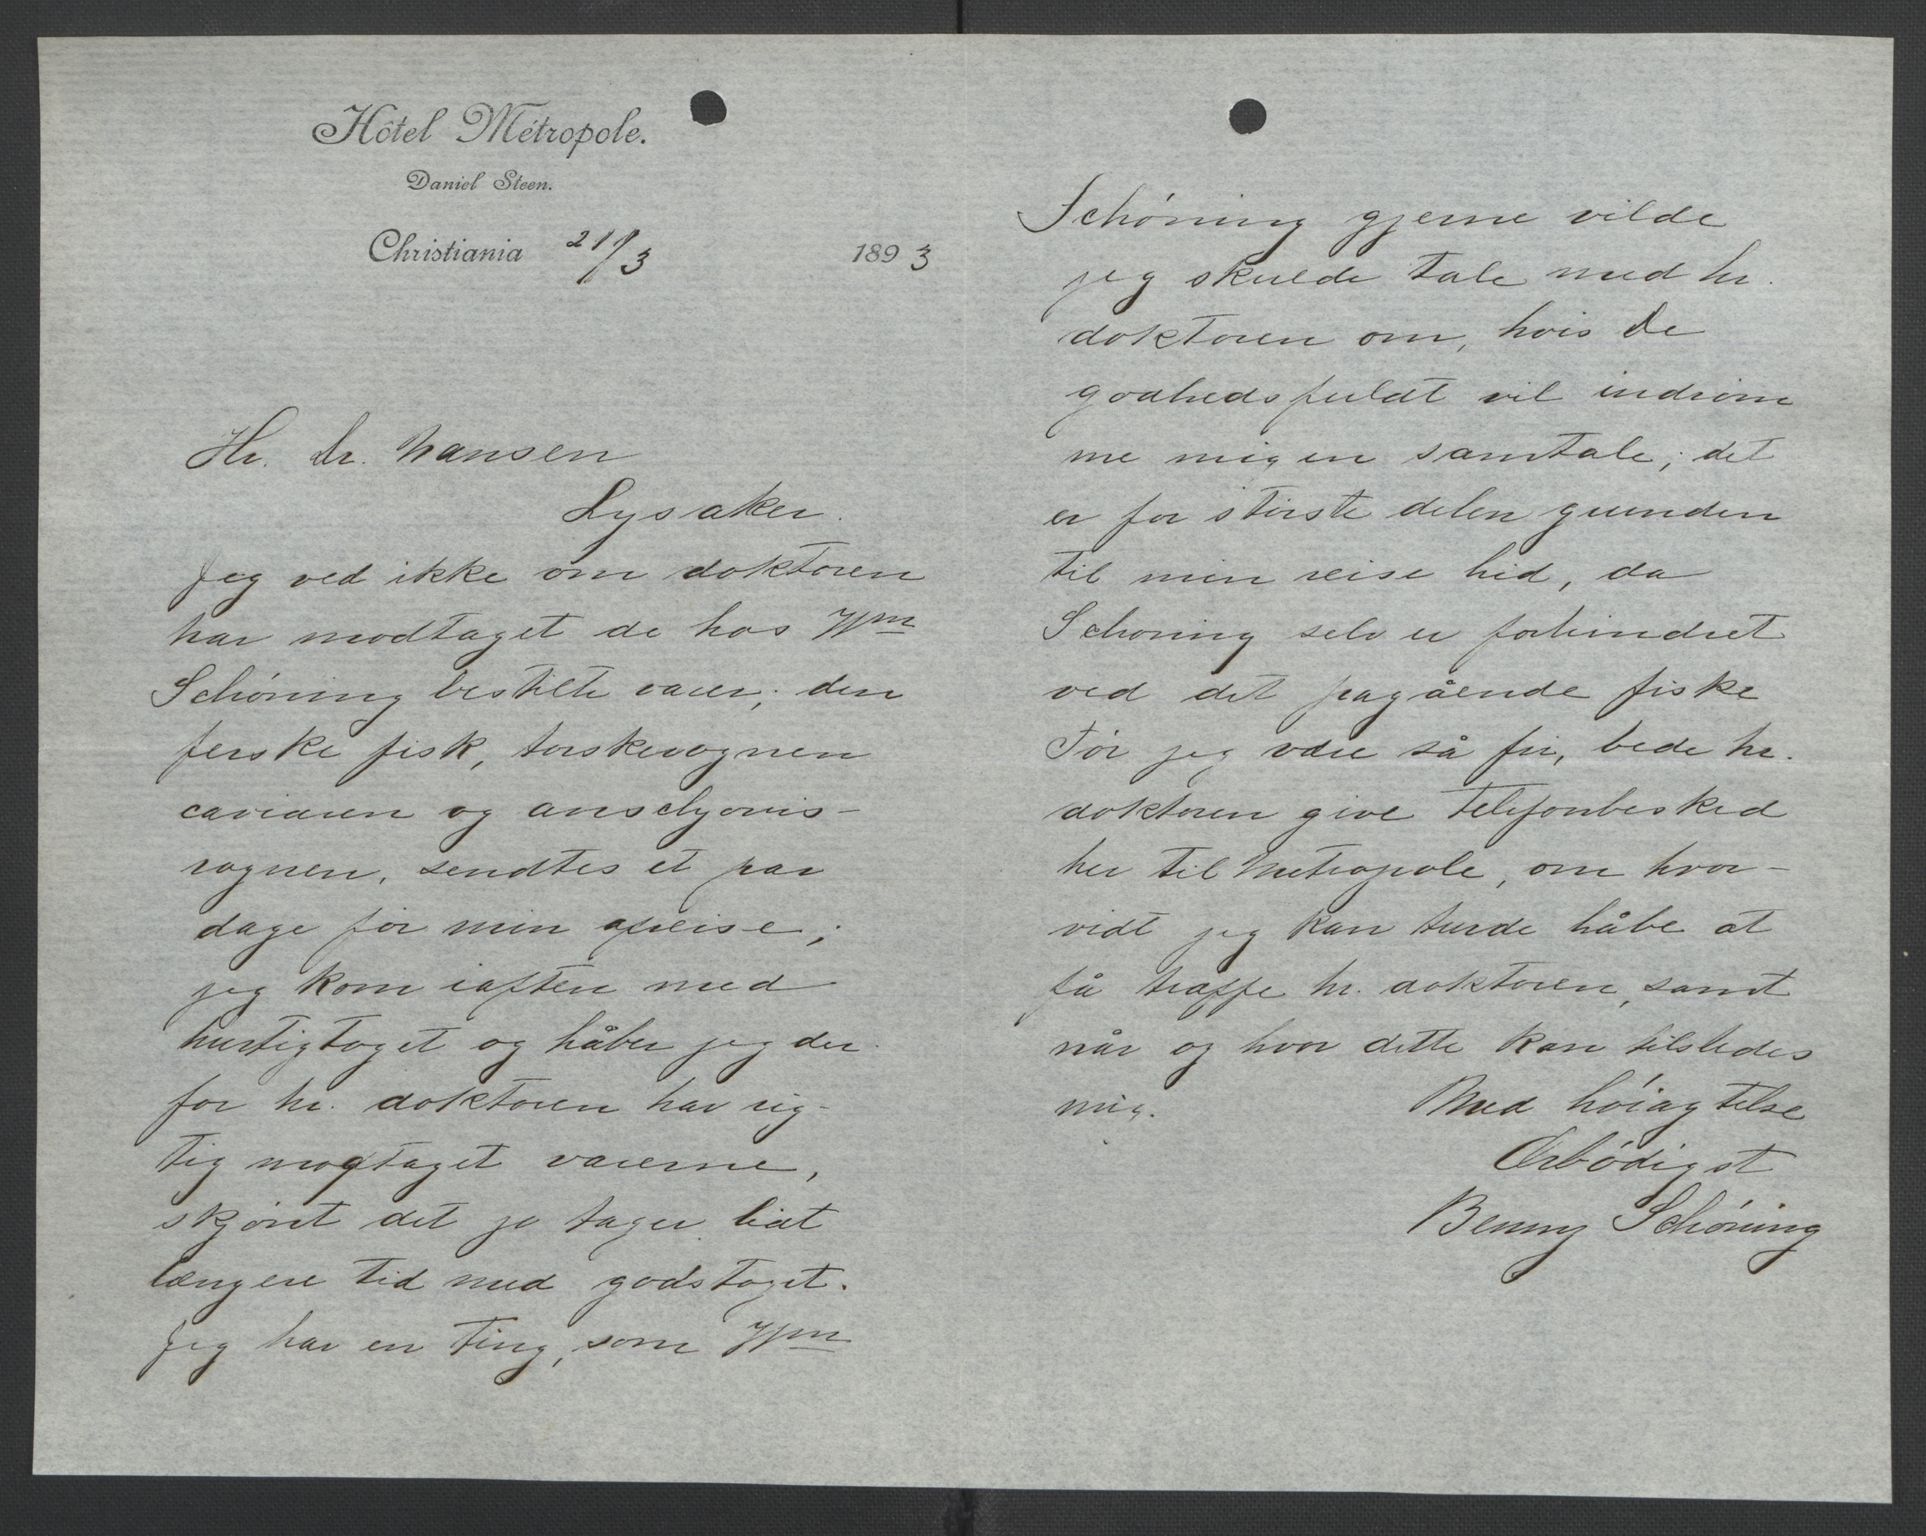 Hôtel Métropole.
Daniel Steen.
Christiania 21/3 1893
Hr. Dr. Nansen
Lysaker.
Jeg ved ikke om doktoren
har modtaget de hos Wm
Schöning bestilte varer; den
ferske fisk, torskerognen
caviaren og anschjovis-
rognen, sendtes et par
dage för min afreise;
jeg kom iaften med
hurtigtoget og håber jeg der-
for hr. doktoren har rig-
tig modtaget varerne,
skjönt det jo tager lidt
længere tid med godstoget.
Jeg har en ting, som Wm
Schöning gjerne vilde
jeg skulde tale med hr.
doktoren om, hvis De
godhedsfuldt vil indröm
me mig en samtale; det
er for störste delen grunden
til min reise hid, da
Schöning selv er forhindret
ved det pågående fiske
Tör jeg være så fri, bede hr.
doktoren give telefonbesked
her til Metropole, om hvor-
vidt jeg kan turde håbe at
få træffe hr. doktoren, samt
når og hvor dette kan tilstedes
mig.
Med höiagtelse
Ærbödigst
Benny Schöning